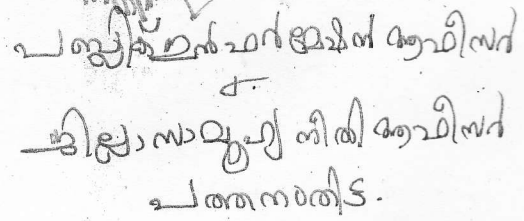 പബ്ലിക്ക് ഇൻഫർമേഷൻ ആഫീസർ
ജില്ലാ സാമൂഹ്യ നീതി ആഫീസർ
പത്തനംതിട്ട.